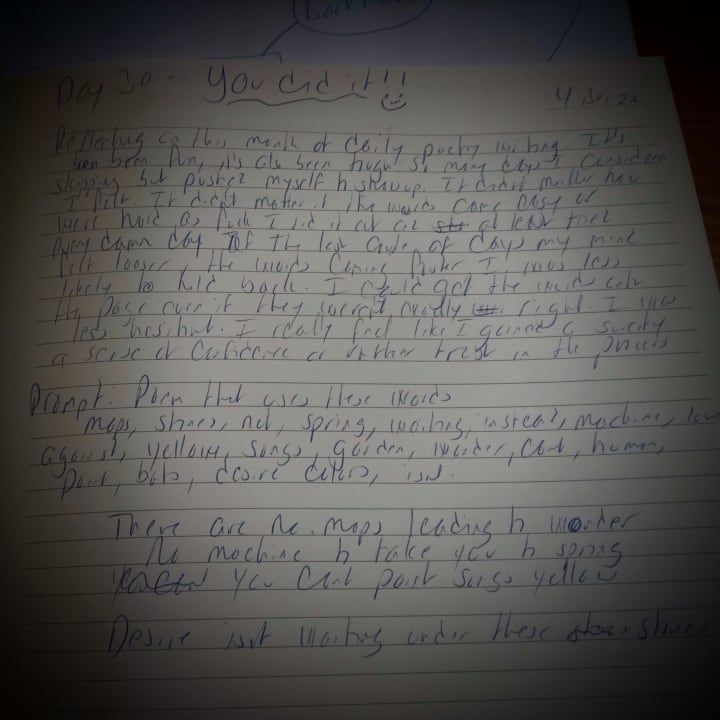 Day 30 - You did it!!
4/30/22
Reflecting on this month of daily poetry writing. It's
been fun, it's also been tough. So many days I considered
stopping but pushed myself to show up. It didn't matter how
I felt. It didn't matter if the words came easy or
were hard as fuck I did it or at least tried
every damn day. The last couple of days my mind
felt looser, the words coming faster I was less
likely to hold back. I could get the words onto
the page even if they weren't exactly right. I was
less hesitant. I really feel like I gained a
a sense of confidence or rather trust in the process
Prompt: Poem that uses these words
maps, shines, not, spring, waiting, instead, machine, love
against, yellow, songs, garden, wonder, can't, human,
paint, desire, colors, isn't.
There are no maps leading to wonder
No machine to take you to spring
You can't paint songs yellow
Desire isn't waiting under these